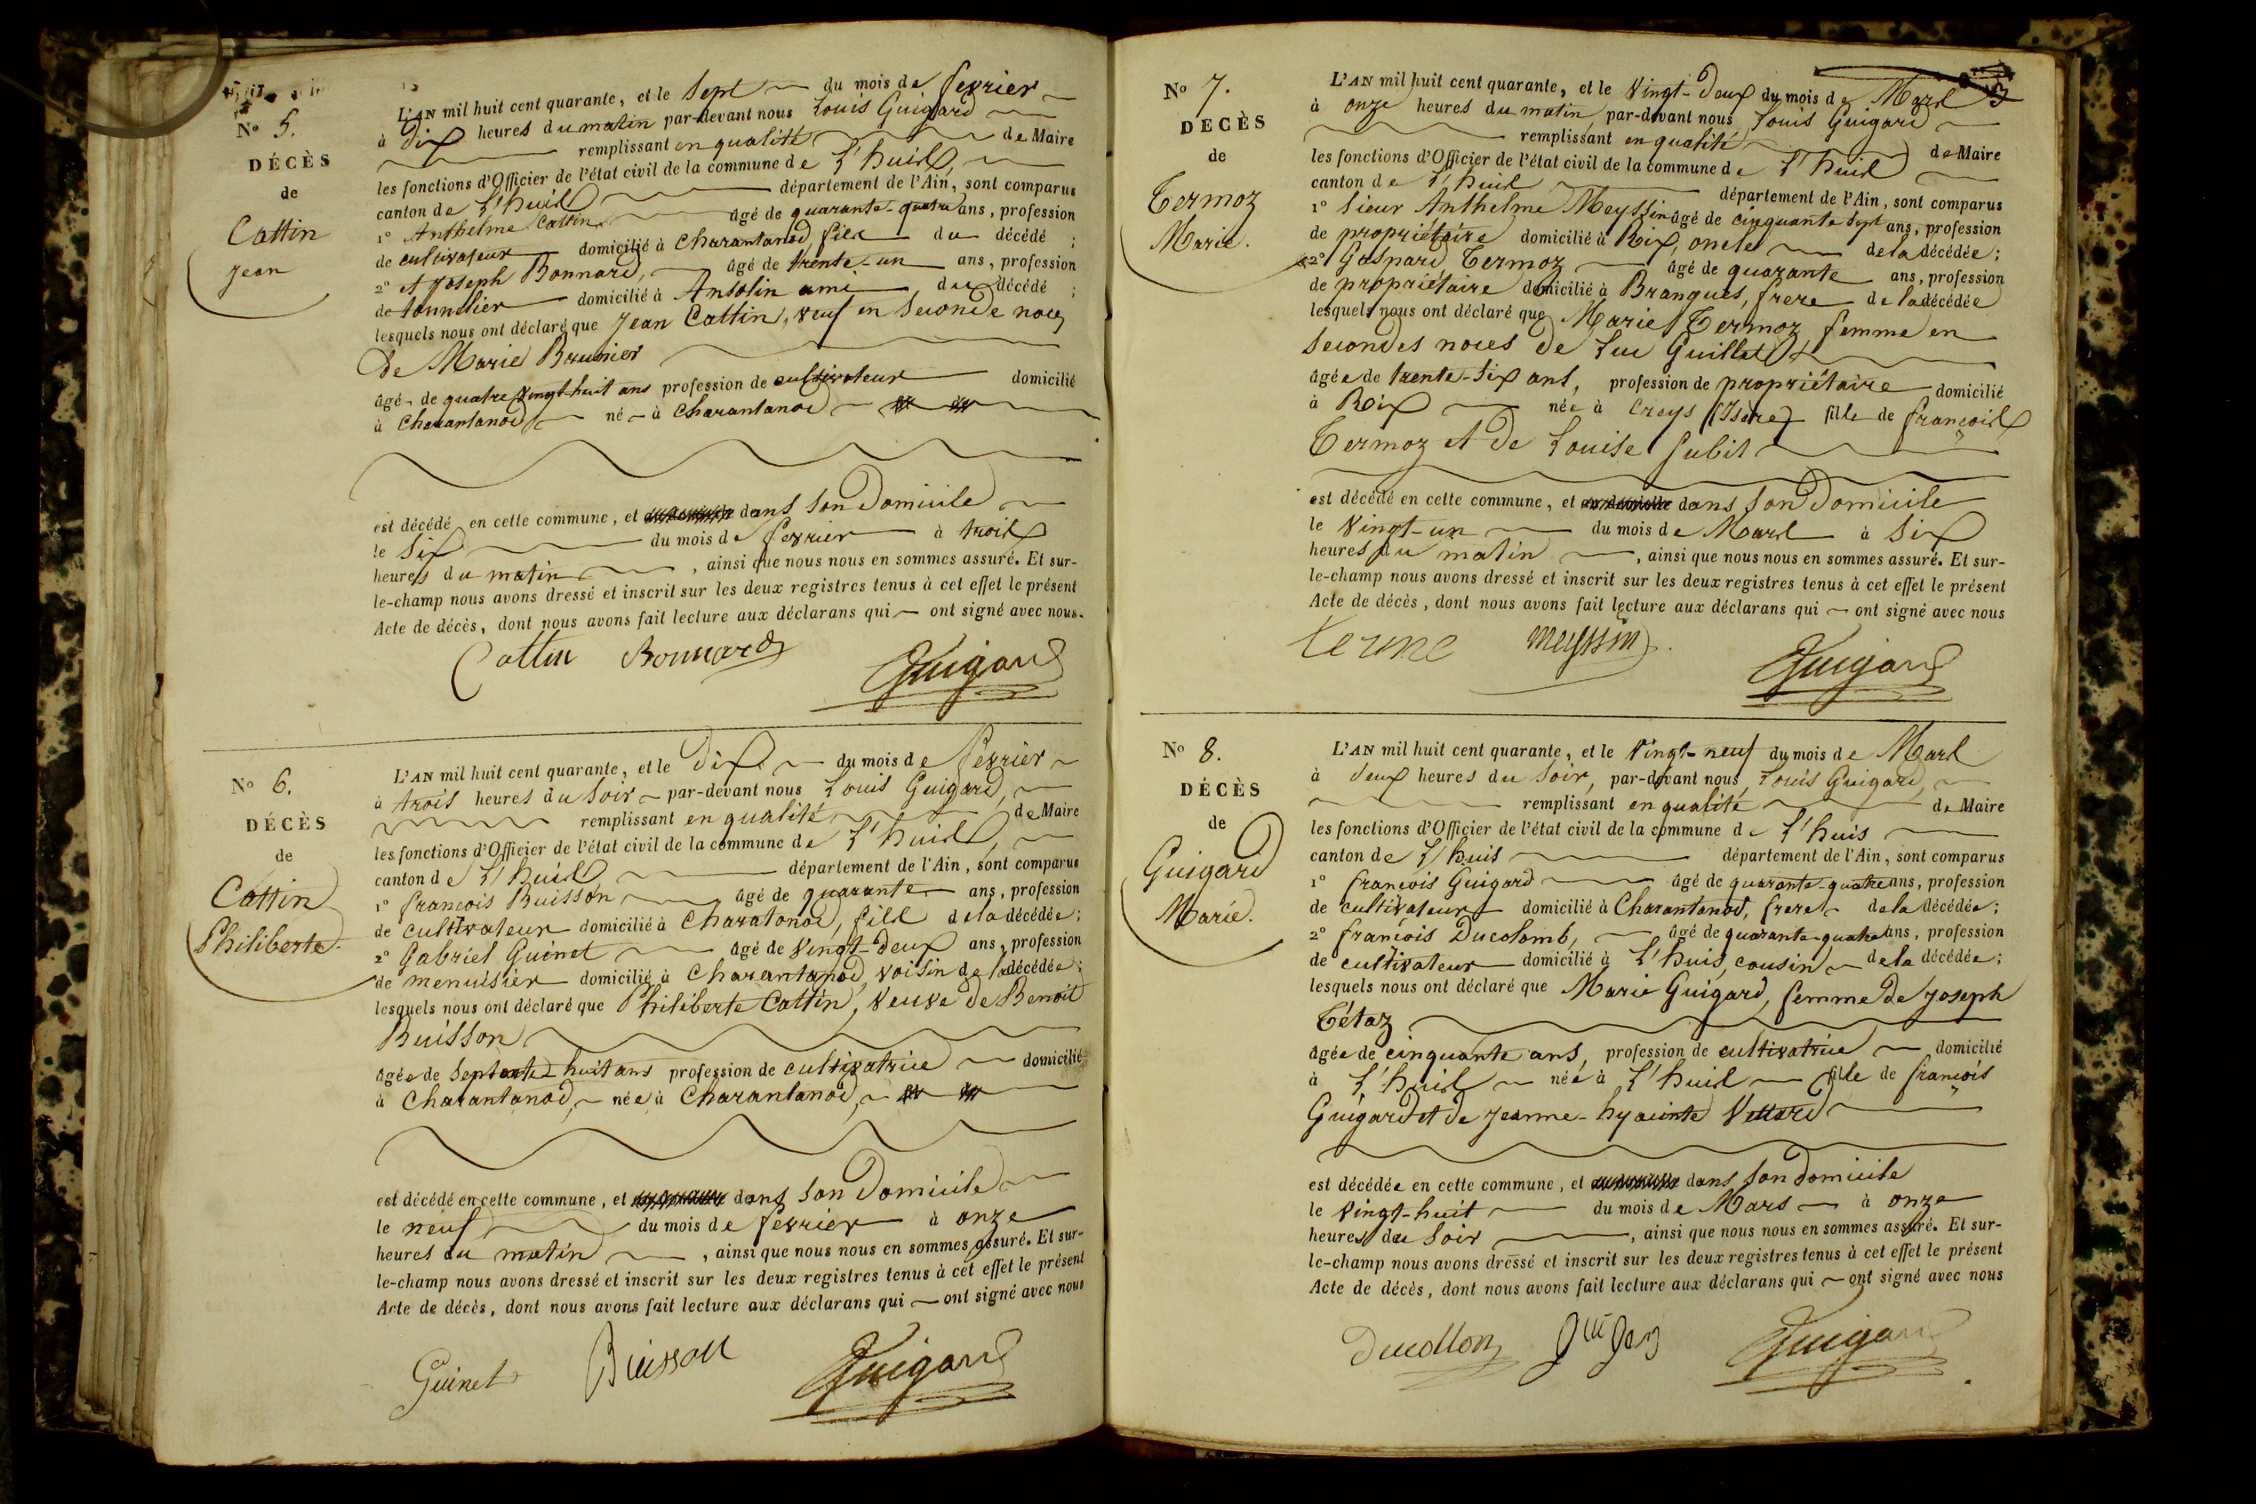 N° 5.
DÉCÈS
de
Cattin
Jean
L'AN mil huit cent quarante, et le sept du mois de fevrier
à dix heures du matin par-devant nous Louis Guigard
remplissant en qualité de Maire
les fonctions d'Officier de l'état civil de la commune de L'huis,
canton de L'huis département de l'Ain, sont comparus
1° Anthelme Cattin âgé de quarante-quatre ans, profession
de cultivateur domicilié à Charantanod, fils du décédé ;
2° et Joseph Bonnard, âgé de trente-un ans, profession
de tonnelier domicilié à Ansolin ami du décédé ;
lesquels nous ont déclaré que Jean Cattin, veuf en seconde noces
de Marie Brunier
âgé de quatre vingt-huit ans profession de cultivateur domicilié
à Charantanod né à Charantanod
est décédé en cette commune, et dans son Domicile
le six du mois de fevrier à trois
heures du matin , ainsi que nous nous en sommes assuré. Et sur-
le-champ nous avons dressé et inscrit sur les deux registres tenus à cet effet le présent
Acte de décès, dont nous avons fait lecture aux déclarans qui ont signé avec nous.
Cattin Bonnard Guigard
N° 6.
DÉCÈS
de
Cattin
Philiberte.
L'AN mil huit cent quarante, et le dix du mois de fevrier
à trois heures du soir par-devant nous Louis Guigard,
remplissant en qualité de Maire
les fonctions d'Officier de l'état civil de la commune de L'huis,
canton de L'huis département de l'Ain, sont comparus
1° francois Buisson âgé de quarante ans, profession
de cultivateur domicilié à Charatonod, fils de la décédée ;
2° Gabriel Guinet âgé de vingt-deux ans, profession
de menuisier domicilié à Charantanod, voisin de la décédée ;
lesquels nous ont déclaré que Philiberte Cattin, veuve de Benoit
Buisson
âgée de septante-huit ans profession de cultivatrice domicilié
à Charantanod, née à Charantanod,
est décédé en cette commune, et dans son Domicile
le neuf du mois de fevrier à onze
heures du matin , ainsi que nous nous en sommes assuré. Et sur-
le-champ nous avons dressé et inscrit sur les deux registres tenus à cet effet le présent
Acte de décès, dont nous avons fait lecture aux déclarans qui ont signé avec nous
Guinet Buisson Guigard
N° 7.
DÉCÈS
de
Termoz
Marie.
L'AN mil huit cent quarante, et le vingt-deux du mois de Mars
à onze heures du matin, par-devant nous Louis Guigard
remplissant en qualité de Maire
les fonctions d'Officier de l'état civil de la commune de L'huis
canton de L'huis département de l'Ain, sont comparus
1° sieur Anthelme Meyssin âgé de cinquante sept ans, profession
de propriétaire domicilié à Rix, oncle de la décédée ;
2° Gaspard Termoz âgé de quarante ans, profession
de propriétaire domicilié à Brangues, frere de la décédée
lesquels nous ont déclaré que Marie Termoz femme en
secondes noces de Luc Guillet
âgée de trente-six ans, profession de propriétaire domicilié
à Rix née à Creys (Isère) fille de françois
Termoz et de Louise Jubit
est décédé en cette commune, et dans son Domicile
le vingt-un du mois de Mars à six
heures du matin , ainsi que nous nous en sommes assuré. Et sur-
le-champ nous avons dressé et inscrit sur les deux registres tenus à cet effet le présent
Acte de décès, dont nous avons fait lecture aux déclarans qui ont signé avec nous
meyssin Guigard
N° 8.
DÉCÈS
de
Guigard
Marie.
L'AN mil huit cent quarante, et le vingt-neuf du mois de Mars
à deux heures du soir, par-devant nous Louis Guigard,
remplissant en qualité de Maire
les fonctions d'Officier de l'état civil de la commune de L'huis
canton de L'huis département de l'Ain, sont comparus
1° françois Guigard âgé de quarante-quatre ans, profession
de cultivateur domicilié à Charantanod, frere de la décédée ;
2° francois Ducolomb, âgé de quarante-quatre ans, profession
de cultivateur domicilié à L'huis, cousin de la décédée ;
lesquels nous ont déclaré que Marie Guigard, femme de Joseph
Tétaz
âgée de cinquante ans, profession de cultivatrice domicilié
à L'huis née à L'huis fille de francois
Guigard et de Jeanne-hyacinte Vettard
est décédée en cette commune, et dans son domicile
le vingt-huit du mois de Mars à onze
heures du soir , ainsi que nous nous en sommes assuré. Et sur-
le-champ nous avons dressé et inscrit sur les deux registres tenus à cet effet le présent
Acte de décès, dont nous avons fait lecture aux déclarans qui ont signé avec nous
Guigard